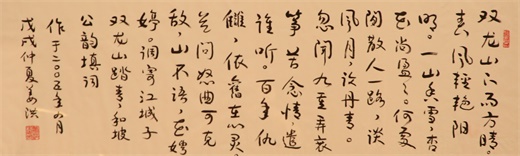 双龙山下雨方晴。
春风轻艳阳
明。一山香雪杏
花尚盈盈。何处
闲散人一路谈
风月许丹青。
忽闻九重弄哀
筝苦念情遣
谁听。百年仇
雠依旧在心灵
若问怒曲可克
敌山不语花娉
婷。调寄江城子
双龙山踏青和坡
公韵填词
作于二〇〇五年四月
戊戌仲夏姜洪